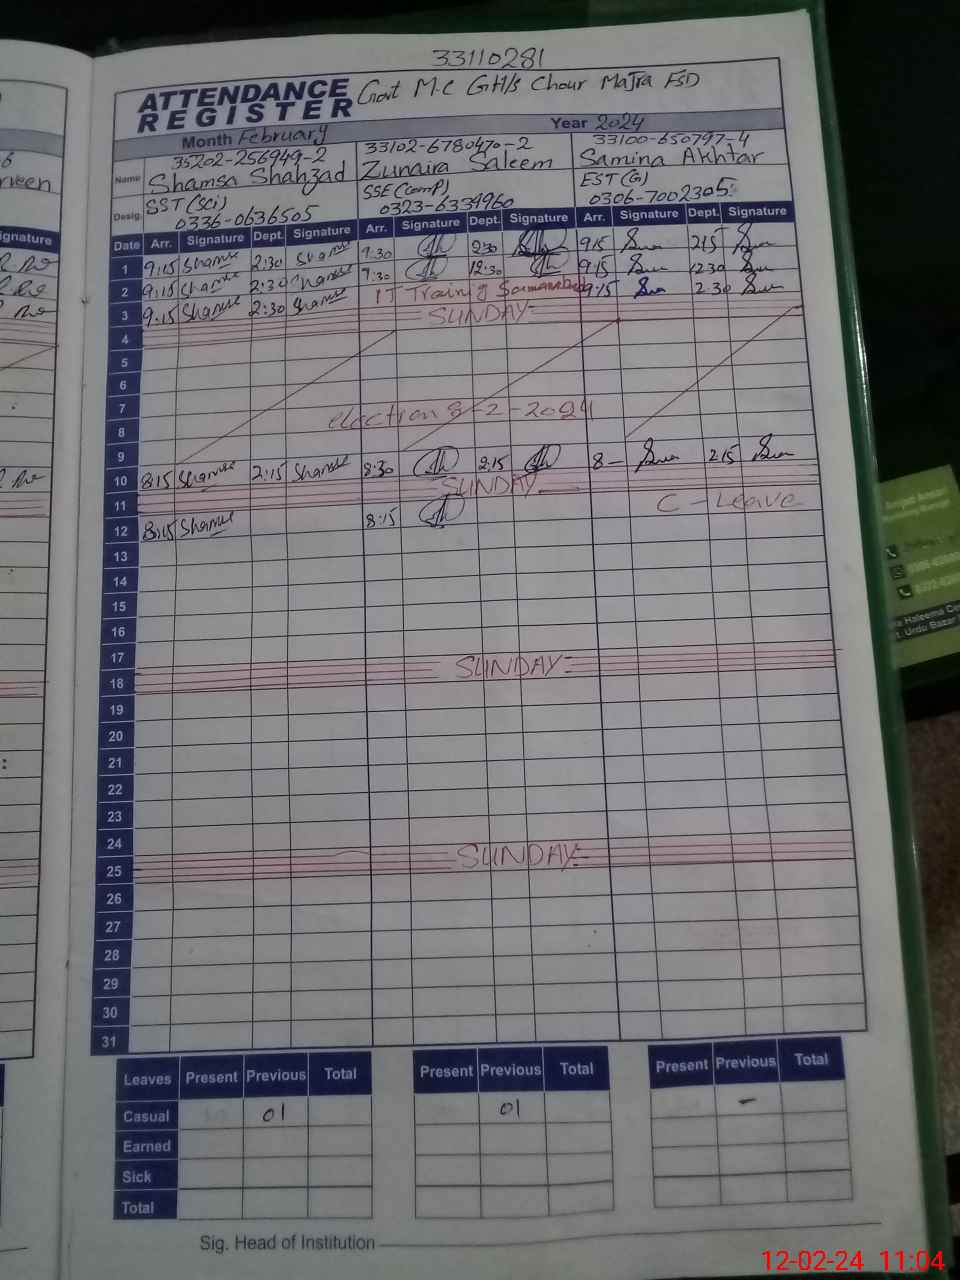 33110281
ATTENDANCE REGISTER Govt M.C GH/s Chour Majra FSD
Month February Year 2024
Name 35202-256949-2 33102-6780470-2 33100-650797-4
Shamsa Shahzad Zunaira Saleem Samina Akhtar
Desig. SST (Sci) SSE (Comp) EST (G)
0336-0636505 0323-6334960 0306-7002305
Date Arr. Signature Dept. Signature Arr. Signature Dept. Signature Arr. Signature Dept. Signature
1 9:15 Shamse 2:30 Shamse 9:30 2:30 9:15 2:15
2 9:15 Shamse 2:30 Shamse 9:30 12:30 9:15 12:30
3 9:15 Shamse 2:30 Shamse IT Training 9:15 2:30
4 SUNDAY
5
6
7
8 election 8-2-2024
9
10 8:15 Shamse 2:15 Shamse 8:30 2:15 8- 2:15
11 SUNDAY
12 8:15 Shamse 8:15 C-Leave
13
14
15
16
17
18 SUNDAY
19
20
21
22
23
24
25 SUNDAY
26
27
28
29
30
31
Leaves Present Previous Total Present Previous Total Present Previous Total
Casual 01 01 -
Earned
Sick
Total
Sig. Head of Institution
12-02-24 11:04